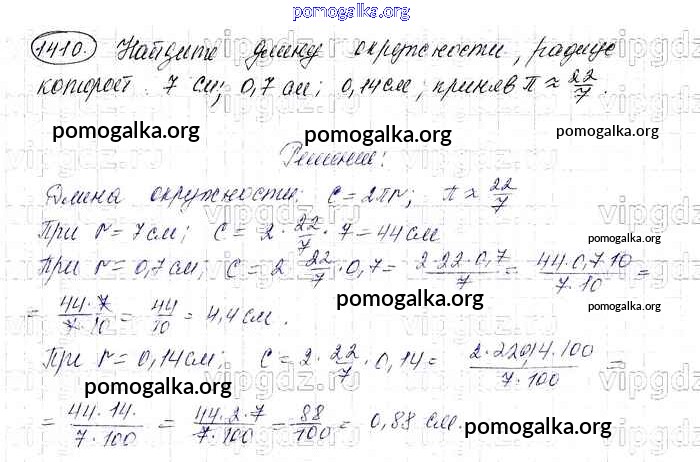 pomogalka.org
1410. Найдите длину окружности, радиус
которой 7 см; 0,7 см; 0,14 см, приняв π ≈ 22/7.
pomogalka.org pomogalka.org pomogalka.org
Решение:
Длина окружности: C = 2πr; π ≈ 22/7
При r = 7 см; C = 2 · 22/7 · 7 = 44 см
pomogalka.org
При r = 0,7 см; C = 2 · 22/7 · 0,7 = 2·22·0,7/7 = 44·0,7·10/7·10 =
= 44·7/7·10 = 44/10 = 4,4 см.
pomogalka.org pomogalka.org
При r = 0,14 см; C = 2 · 22/7 · 0,14 = 2·22·0,14·100/7·100 =
pomogalka.org pomogalka.org
= 44·14·/7·100 = 44·2·7/7·100 = 88/100 = 0,88 см.
pomogalka.org
vipgdz.ru